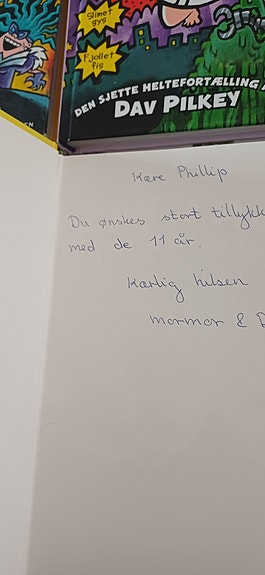 Slimet
gys
Fjollet
fis
DEN SJETTE HELTEFORTÆLLING
DAV PILKEY
EN
Kære Phillip
Du ønskes stort tillykk
med de 11 år.
Kærlig hilsen
mormor & D